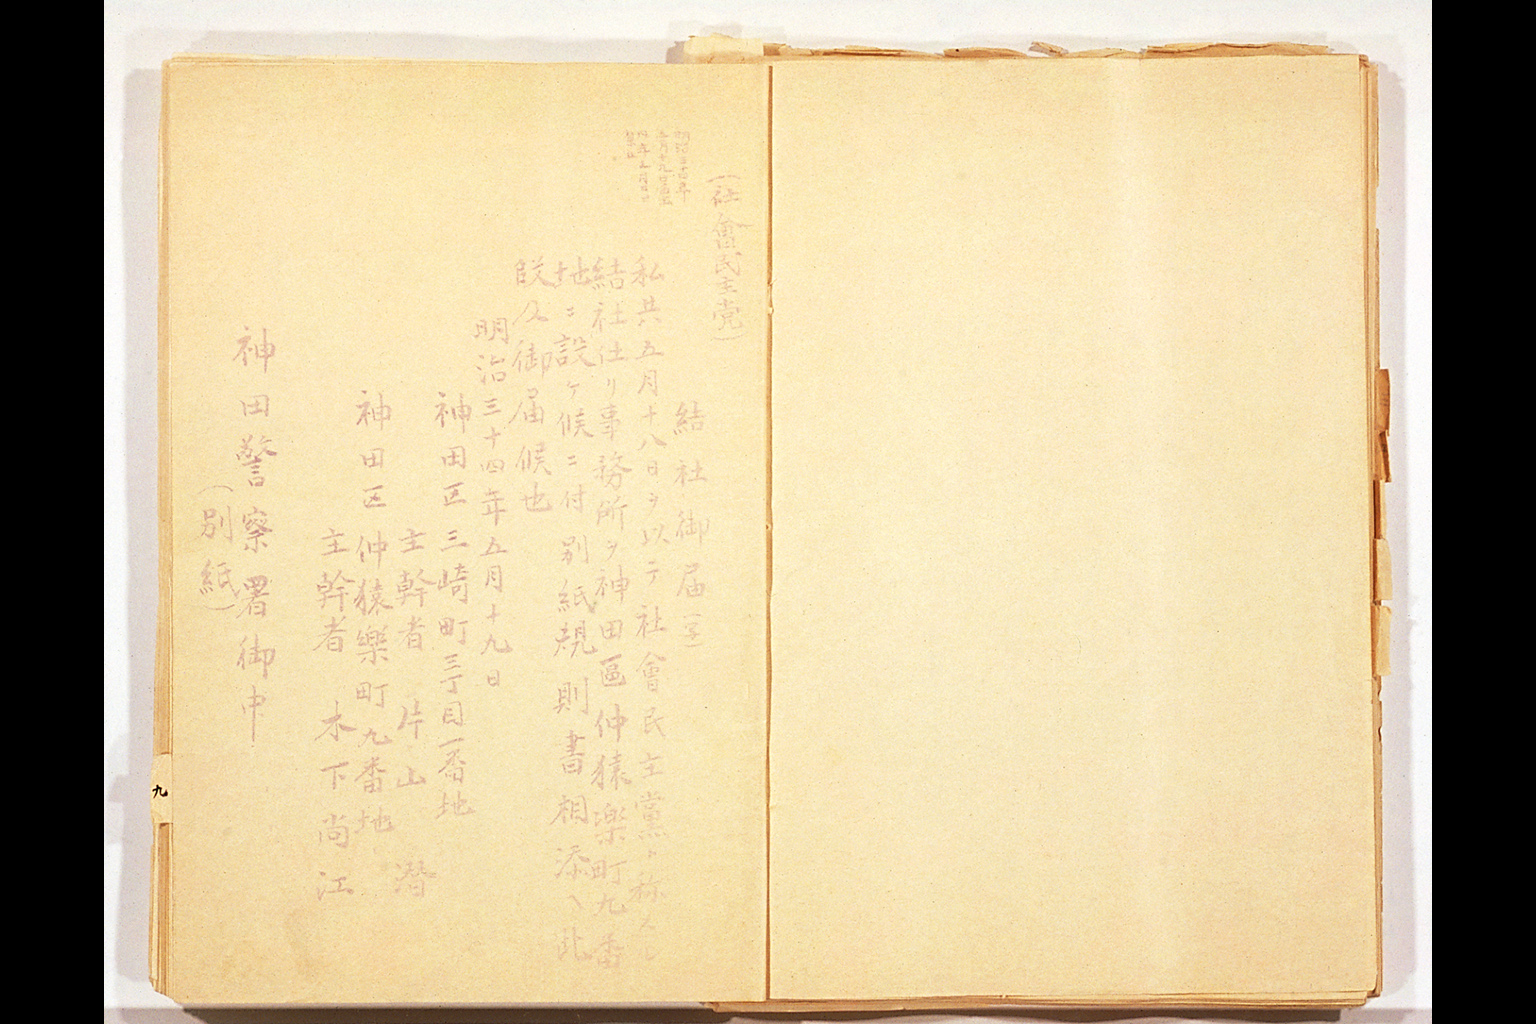 （社會民主党）
明治三十四年
五月十九日
四年五月
結社御届（写）
私共五月十八日ヲ以テ社會民主黨ト称スル
結社仕リ事務所ヲ神田區仲猿楽町九番
地ニ設ケ候ニ付別紙規則書相添ヘ此
段及御届候也
明治三十四年五月十九日
神田区三崎町三丁目一番地
主幹者 片山潜
神田区仲猿樂町九番地
主幹者 木下尚江
神田警察署御中
（別紙）
九